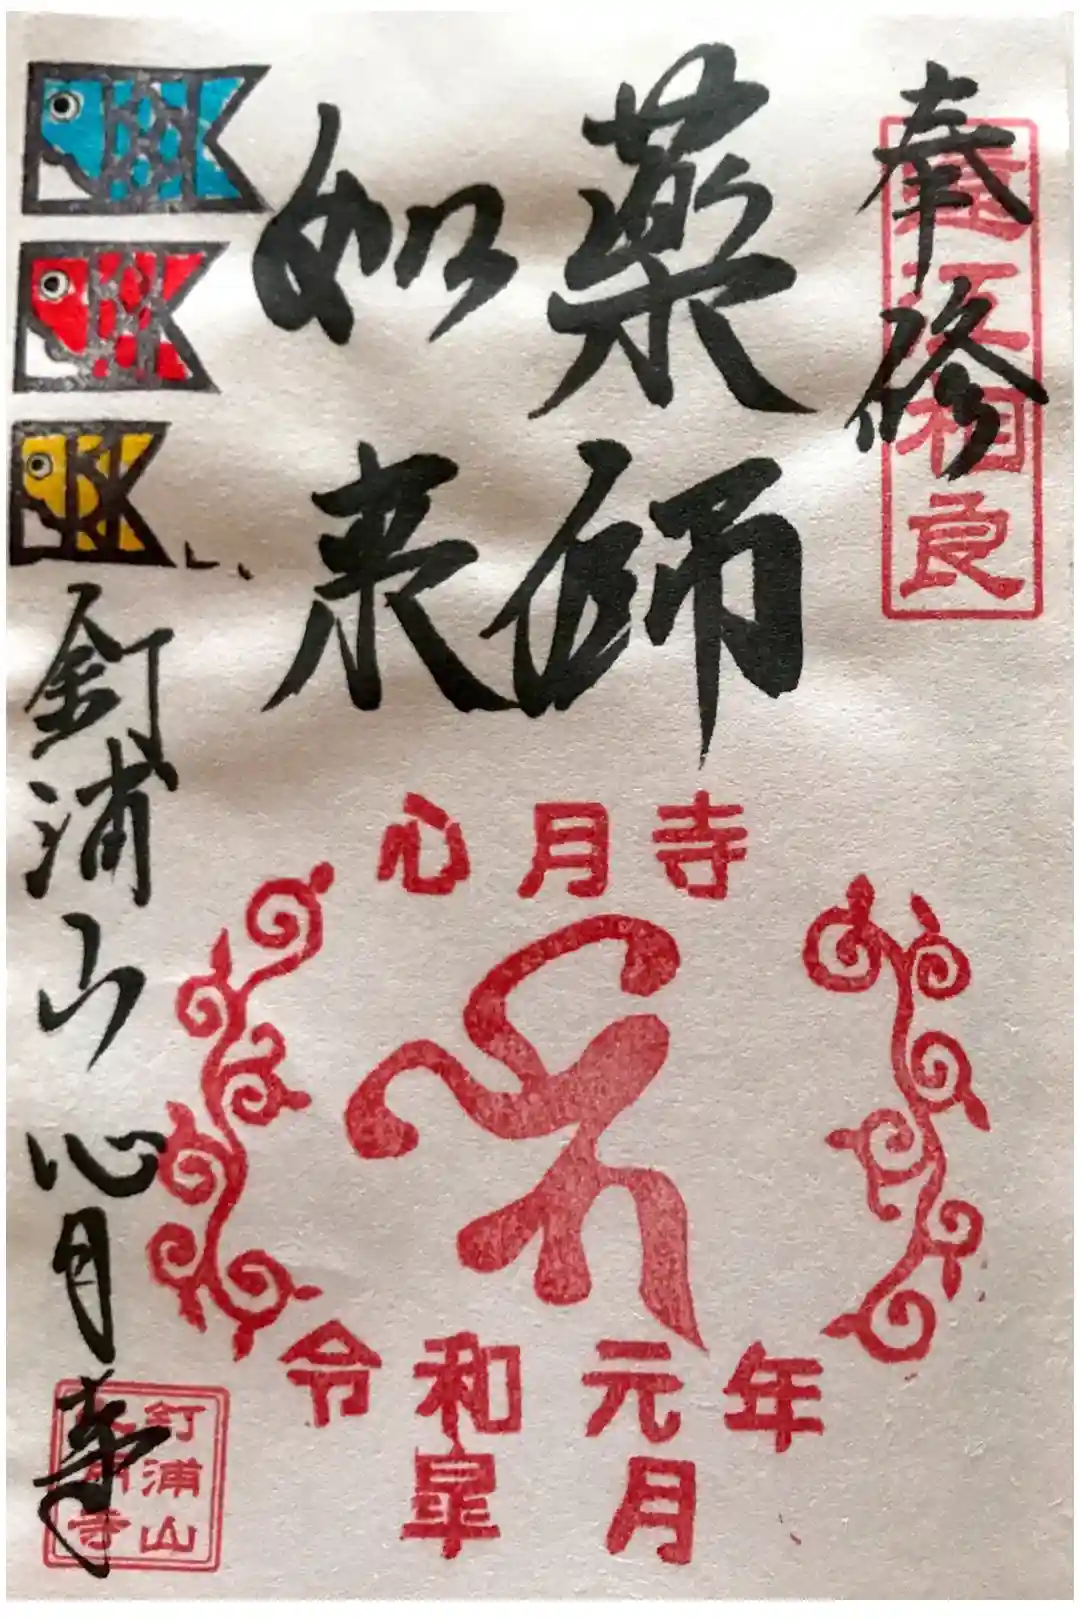 奉修
遠江相良
薬師
如来
心月寺
令和元年
皐月
釘浦山 心月寺
釘浦山
心月寺